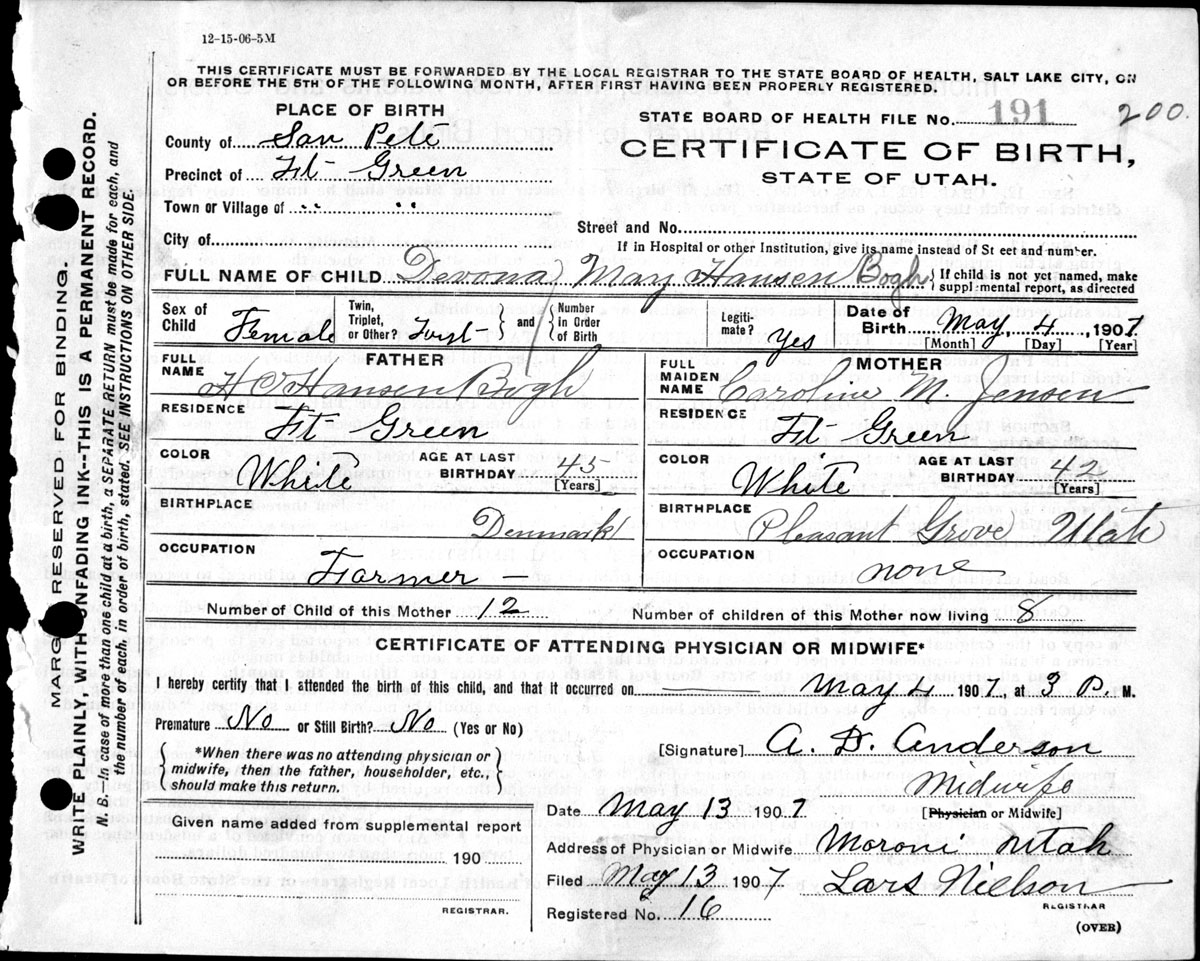 12-15-06-5M
THIS CERTIFICATE MUST BE FORWARDED BY THE LOCAL REGISTRAR TO THE STATE BOARD OF HEALTH, SALT LAKE CITY, ON
OR BEFORE THE 5TH OF THE FOLLOWING MONTH, AFTER FIRST HAVING BEEN PROPERLY REGISTERED.
PLACE OF BIRTH
STATE BOARD OF HEALTH FILE NO. 191 200.
County of San Pete
CERTIFICATE OF BIRTH,
STATE OF UTAH.
Precinct of Ft Green
Town or Village of " "
Street and No.
City of
If in Hospital or other Institution, give its name instead of St eet and number.
FULL NAME OF CHILD Devona May Hansen Bogh { If child is not yet named, make supplemental report, as directed
Sex of Child Female Twin, Triplet, or Other? } and { Number in Order of Birth Legiti-mate? Yes Date of Birth May 4, 1907
[Month] [Day] [Year]
FATHER
FULL NAME H C Hansen Bogh
RESIDENCE Ft Green
COLOR White AGE AT LAST BIRTHDAY 45 [Years]
BIRTHPLACE Denmark
OCCUPATION Farmer —
MOTHER
FULL MAIDEN NAME Caroline M. Jensen
RESIDENCE Ft Green
COLOR White AGE AT LAST BIRTHDAY 42 [Years]
BIRTHPLACE Pleasant Grove Utah
OCCUPATION none
Number of Child of this Mother 12 Number of children of this Mother now living 8
CERTIFICATE OF ATTENDING PHYSICIAN OR MIDWIFE*
I hereby certify that I attended the birth of this child, and that it occurred on May 4 1907, at 3 P. M.
Premature No or Still Birth? No (Yes or No)
{ *When there was no attending physician or
midwife, then the father, householder, etc.,
should make this return. }
[Signature] A. D. Anderson
Midwife
[Physician or Midwife]
Date May 13 1907
Given name added from supplemental report
190
REGISTRAR.
Address of Physician or Midwife Moroni Utah
Filed May 13 1907 Lars Nielson
REGISTRAR
Registered No. 16
(OVER)
MARGIN RESERVED FOR BINDING.
WRITE PLAINLY WITH UNFADING INK--THIS IS A PERMANENT RECORD.
N. B. In case of more than one child at a birth, a SEPARATE RETURN must be made for each, and
the number of each, in order of birth, stated. SEE INSTRUCTIONS ON OTHER SIDE.